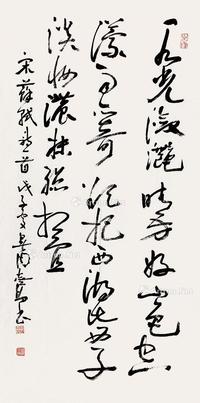 水光瀲灩晴方好山色空
濛雨亦奇欲把西湖比西子
淡妝濃抹總相宜
宋蘇軾詩首戊子